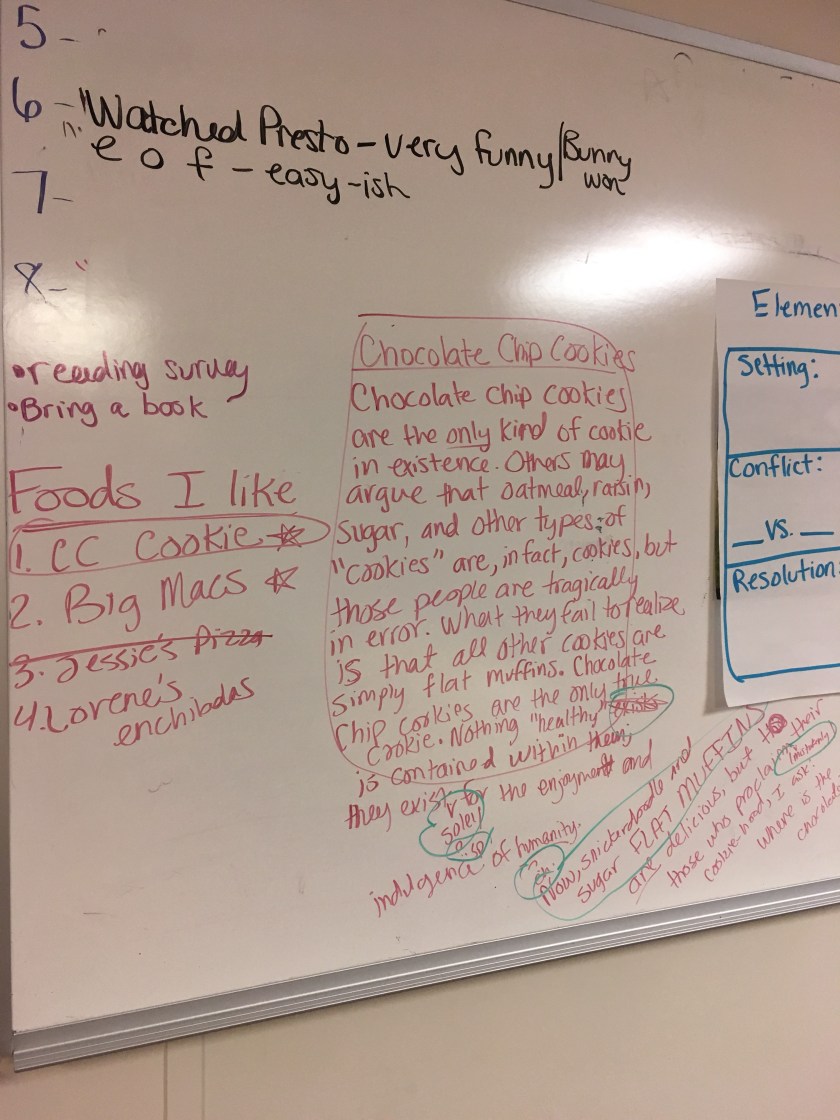 5-
6- "Watched Presto - very funny/Bunny
won
e o f - easy-ish
7-
8-
• reading survey
• Bring a book
Foods I like
1. CC Cookie
2. Big Macs
3. Jessie's Pizza
4. Lorene's
enchiladas
Chocolate Chip Cookies
Chocolate Chip cookies
are the only kind of cookie
in existence. Others may
argue that oatmeal, raisin,
sugar, and other types of
"cookies" are, in fact, cookies, but
those people are tragically
in error. What they fail to realize
is that all other cookies are
simply flat muffins. Chocolate
Chip cookies are the only true
cookie. Nothing "healthy" exists
is contained within them,
they exist for the enjoyment and
solely
indulgence of humanity.
Now, snickerdoodle and
sugar FLAT MUFFINS
are delicious, but to
those who proclaim their
cookie-hood, I ask:
where is the
Elemen
Setting:
Conflict:
__ vs. __
Resolution: